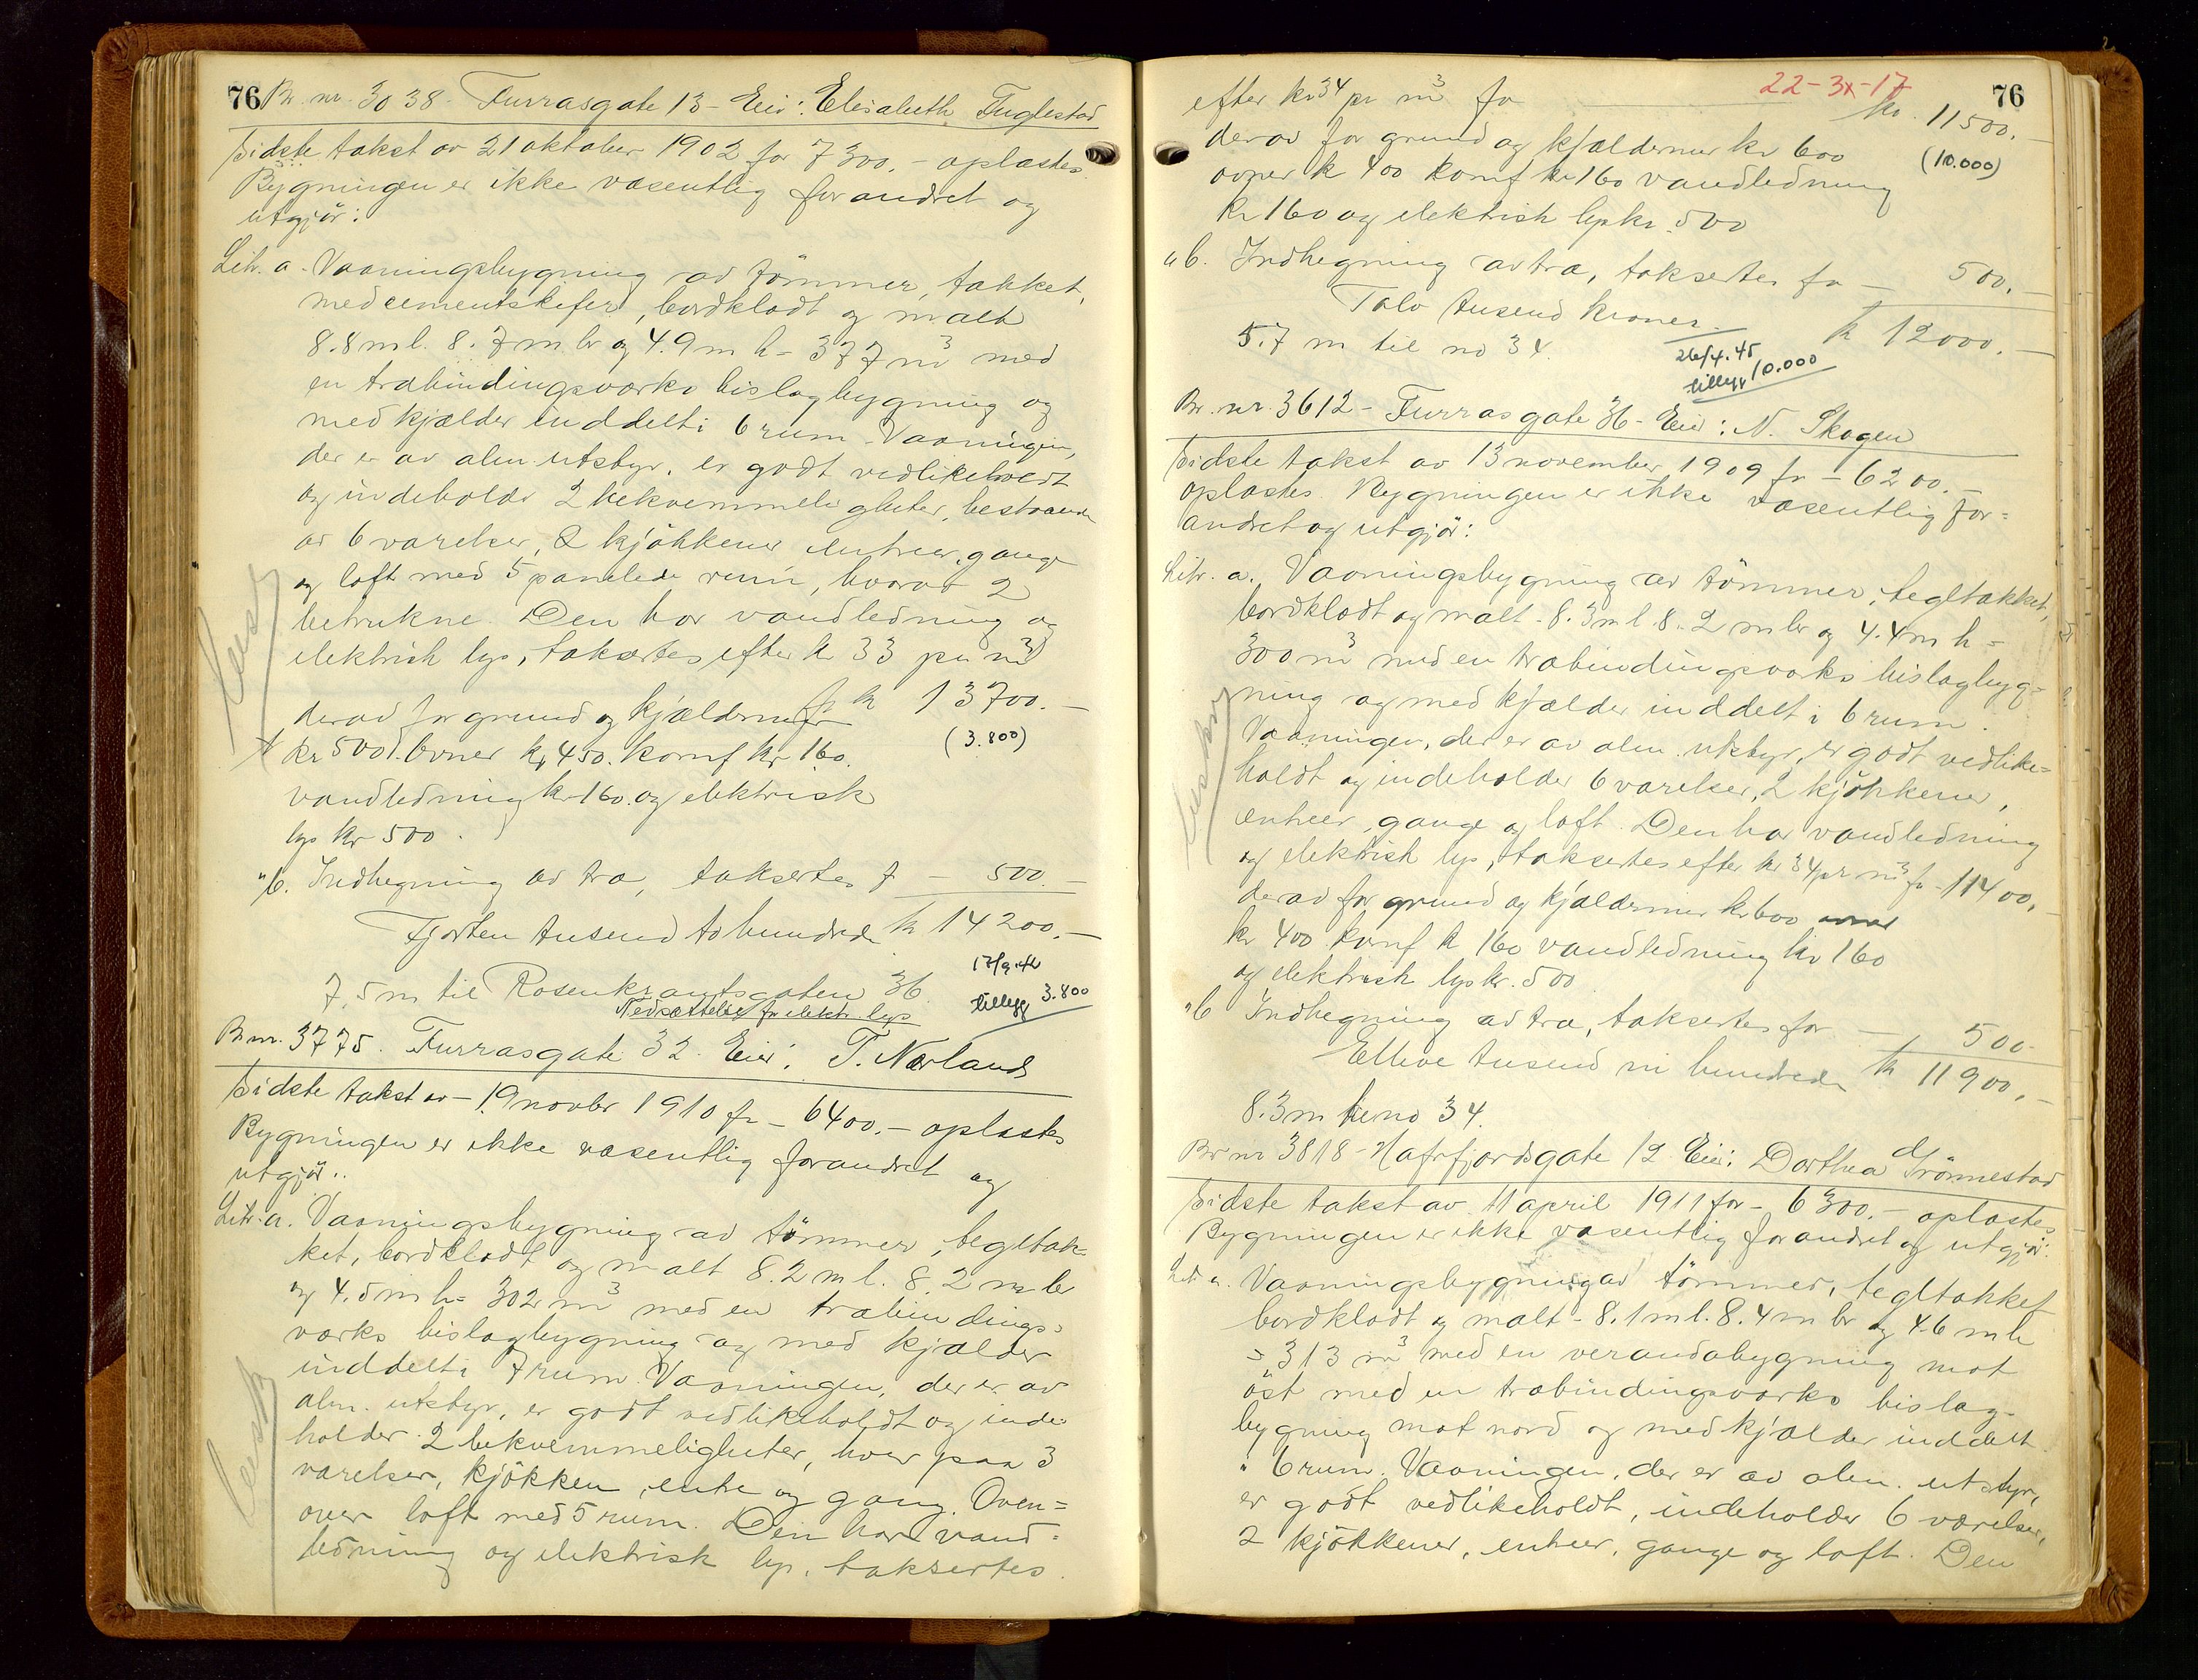 76 Br. nr. 3038 - Furrasgate 13 - Eier: Elisabeth Fuglestad
Sidste takst av 21 oktober 1902 for 7300.- oplæstes.
Bygningen er ikke væsentlig forandret og
utgjør:
Litr. a. Vaaningsbygning av tömmer, tækket,
med cementskifer, bordklædt og malt
8.8 m l. 8.7 m br og 4.9 m h = 377 m3 med
en træbindingsværks bislagbygning og
med kjælder inddelt i 6 rum. Vaaningen,
der er av alm utstyr, er godt vedlikeholdt
og indeholder 2 bekvemmeligheter, bestaaende
av 6 værelser, 2 kjøkkener entreer, gange
og loft med 5 panelede rum, hvorav 2
betrukne. Den har vandledning og
elektrisk lys, takseres efter kr 33 pr m3
for kr 13700.-
derav for grund og kjældermur
(3.800)
kr 500. Ovner kr 450. komf kr 160.
vandledning kr 160. og elektrisk
lys kr 500.
" b. Indhegning av træ, takseres f - 500.-
Fjorten tusend to hundrede kr 14200.-
7,5 m til Rosenkrantsgaten 36.
17/9.42
tillegg 3.800
Nedsættelse for elektr. lys
Br nr. 3775. Furrasgate 32. Eier: T. Nærland
Sidste takst av - 19 novbr 1910 for - 6400.- oplæstes
Bygningen er ikke væsentlig forandret og
utgjør:
Litr. a. Vaaningsbygning av tömmer, tegltæk=
ket, bordklædt og malt 8.2 m l. 8.2 m br
og 4.5 m h = 302 m3 med en træbindings=
værks bislagbygning og med kjælder
inddelt i 7 rum. Vaaningen, der er av
alm. utstyr, er godt vedlikeholdt og inde
holder 2 bekvemmeligheter, hver paa 3
værelser, kjøkken, entre og gang. Oven=
over loft med 5 rum. Den har vand=
ledning og elektrisk lys, takseres
22-3x-17 76
efter kr 34 pr m3 for kr. 11500.-
derav for grund og kjældermur kr 600 (10.000)
ovner kr 400 komf kr 160 vandledning
kr 160 og elektrisk lys kr. 500
" b. Indhegning av træ, takseres for - 500.-
Tolv tusend kroner. kr 12000.-
5.7 m til no 34.
26/4.45
tillegg 10.000
Br. nr. 3612 - Furrasgate 36 - Eier: N. Skogen
Sidste takst av 13 november 1909 for - 6200.-
oplæstes. Bygningen er ikke væsentlig for=
andret og utgjør:
Litr. a. Vaaningsbygning av tömmer, tegltækket,
bordklædt og malt - 8.3 m l. 8.2 m br og 4.4 m h =
300 m3 med en træbindingsværks bislagbyg=
ning og med kjælder inddelt i 6 rum.
Vaaningen, der er av alm. utstyr, er godt vedlike=
holdt og indeholder 6 værelser, 2 kjøkkener,
entreer, gange og loft. Den har vandledning
og elektrisk lys, takseres efter kr 34 pr m3 for - 11400.-
derav for grund og kjældermur kr 600
kr 400 komf kr 160 vandledning kr 160
og elektrisk lys kr. 500
" b Indhegning av træ, takseres for - 500-
Elleve tusend ni hundrede kr 11900.-
8.3 m til no 34.
Br nr 3818 - Hafrsfjordsgate 12 Eier: Dorthea Grönnestad
Sidste takst av 11 april 1911 for - 6300.- oplæstes
Bygningen er ikke væsentlig forandret og utgjør:
Litr a. Vaaningsbygning av tömmer, tegltækket
bordklædt og malt - 8.1 m l. 8.4 m br og 4.6 m h
= 313 m3 med en verandabygning mot
öst med en træbindingsværks bislag-
bygning mot nord og med kjælder inddelt
i 6 rum. Vaaningen, der er av alm. utstyr,
er godt vedlikeholdt, indeholder 6 værelser,
2 kjøkkener, entreer, gange og loft. Den